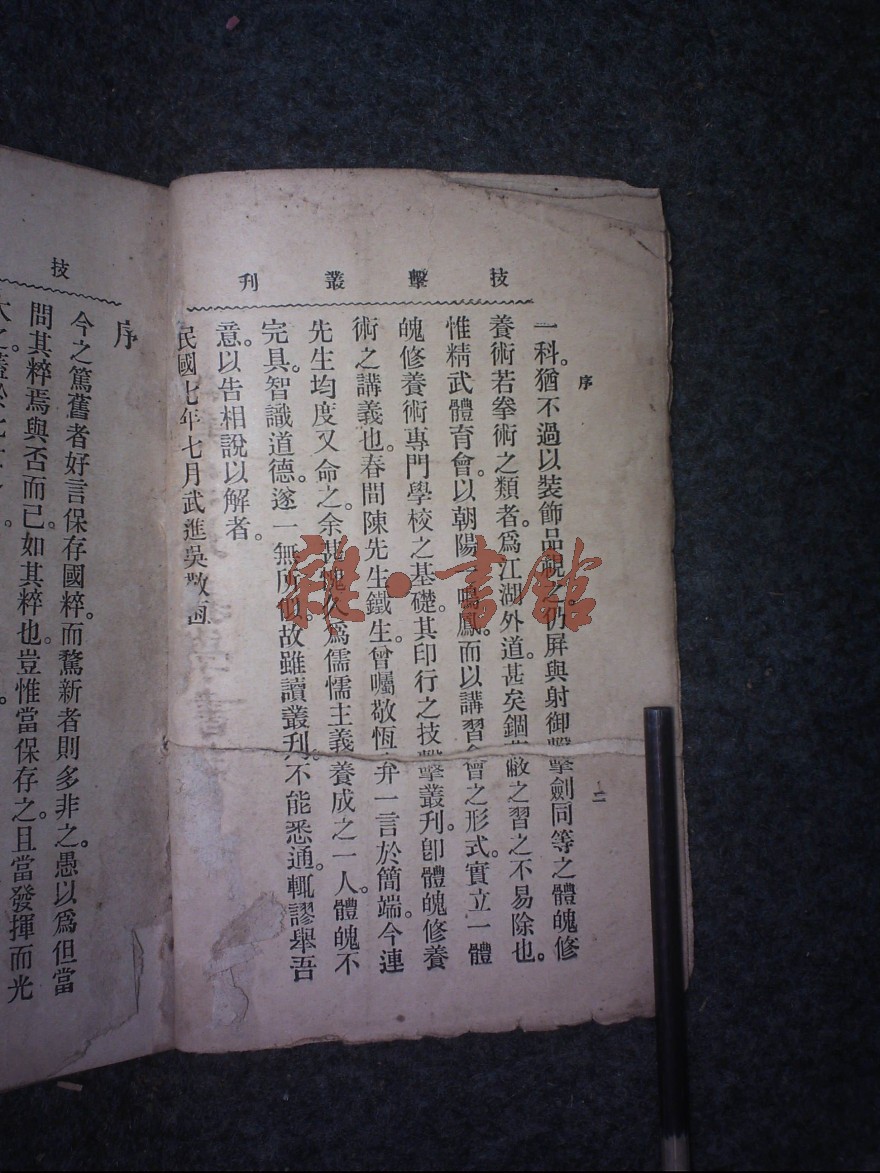 技擊叢刊
序
二
一科。猶不過以裝飾品視之。仍屏與射御擊劍同等之體魄修
養術若拳術之類者。爲江湖外道。甚矣錮蔽之習之不易除也。
惟精武體育會。以朝陽一鳴鳳。而以講習會之形式。實立一體
魄修養術專門學校之基礎。其印行之技擊叢刊。卽體魄修養
術之講義也。春間陳先生鐵生曾囑敬恆弁一言於簡端。今連
先生均度又命之。余甚愧久爲儒懦主義養成之一人。體魄不
完具。智識道德。遂一無所似。故雖讀叢刊。不能悉通。輒謬舉吾
意。以告相說以解者。
民國七年七月武進吳敬恆
技
序
今之篤舊者好言保存國粹。而騖新者則多非之。愚以爲但當
問其粹焉與否而已。如其粹也。豈惟當保存之。且當發揮而光
大之。蓋
雜·書館